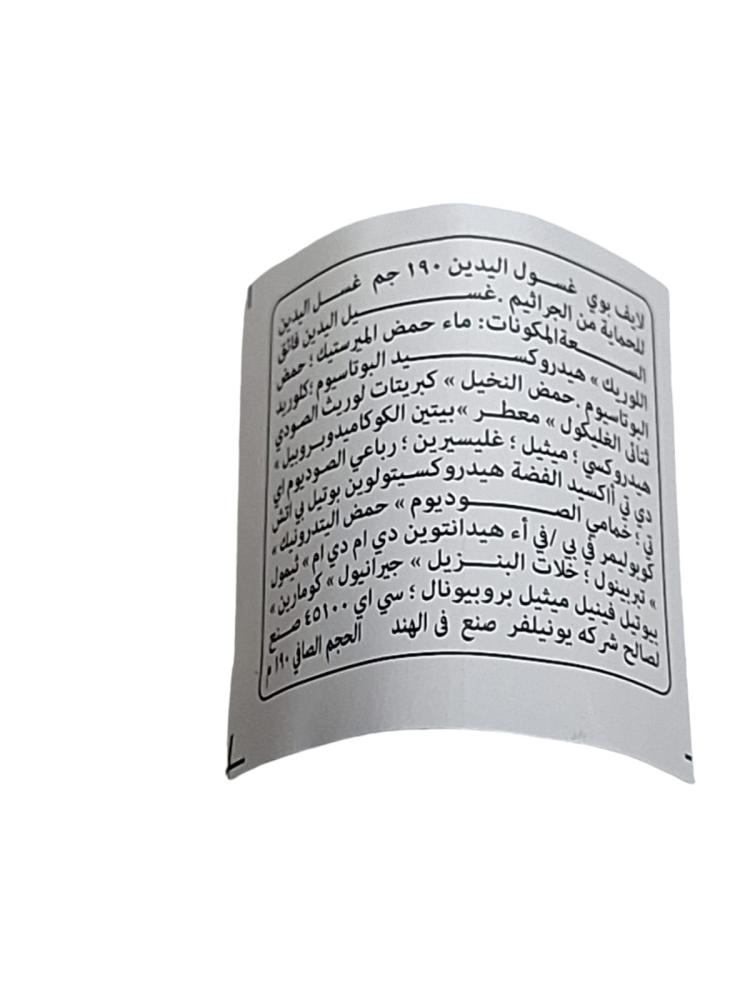 لايف بوي غسول اليدين ١٩٠ جم غسل اليدين
للحماية من الجراثيم .غسيل اليدين فائق
السعةالمكونات: ماء حمض الميرستيك ؛ حمض
اللوريك » هيدروكسيد البوتاسيوم ؛كلوريد
البوتاسيوم .حمض النخيل » كبريتات لوريث الصودي
ثنائى الغليكول » معطر »بيتين الكوكاميدوبروبيل »
هيدروكسي ؛ ميثيل ؛ غليسيرين ؛ رباعي الصوديوم اي
دي تي أاكسيد الفضة هيدروكسيتولوين بوتيل بي اتش
تي ؛خمامي الصوديوم » حمض اليتدرونيك »
كوبوليمر في بي /في أء هيدانتوين دي ام دي ام » ثيمول
» تيربينول ؛ خلات البنزيل » جيرانيول » كومارين »
بيوتيل فينيل ميثيل بروبيونال ؛ سي اي ٤٥١٠٠ صنع
لصالح شركه يونيلفر صنع فى الهند الحجم الصافي ١٩٠ م